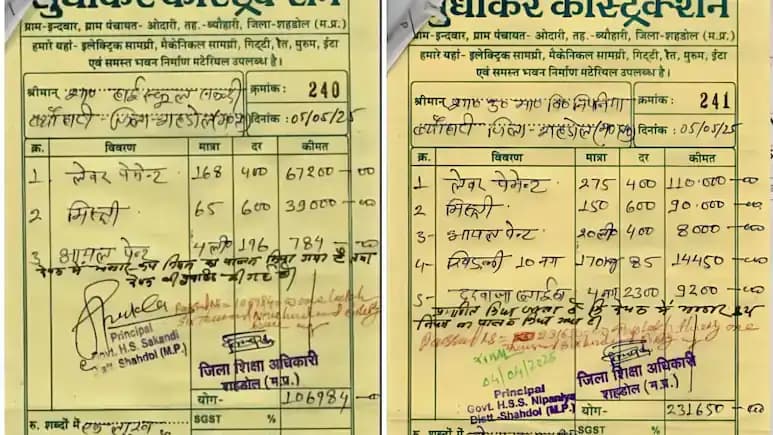 सुधाकर कंस्ट्रक्शन
ग्राम-इन्दवार, ग्राम पंचायत- ओदारी, तह. ब्यौहारी, जिला-शहडोल (म.प्र.)
हमारे यहां- इलेक्ट्रिक सामग्री, मैकेनिकल सामग्री, गिट्टी, रेत, मुरुम, ईटा
एवं समस्त भवन निर्माण मटेरियल उपलब्ध है।
श्रीमान् शास० हाई स्कूल सकन्दी
क्रमांक : 240
ब्यौहारी जिला शहडोल (म०प्र०)
दिनांक : 05/05/25
क्र. विवरण मात्रा दर कीमत
1 लेवर पेमेन्ट 168 400 67200 =00
2 मिस्त्री 65 600 39000 =00
3 आयल पेन्ट 4 ली० 196 784 =00
Principal
Govt. H.S. Sakandi
Distt. Shahdol (M.P.)
जिला शिक्षा अधिकारी
शहडोल (म.प्र.)
योग- 106984 =00
रु. शब्दों में एक लाख
SGST %
सुधाकर कंस्ट्रक्शन
ग्राम-इन्दवार, ग्राम पंचायत- ओदारी, तह. ब्यौहारी, जिला-शहडोल (म.प्र.)
हमारे यहां- इलेक्ट्रिक सामग्री, मैकेनिकल सामग्री, गिट्टी, रेत, मुरुम, ईटा
एवं समस्त भवन निर्माण मटेरियल उपलब्ध है।
श्रीमान् शास०
क्रमांक : 241
ब्यौहारी जिला- शहडोल (म०प्र०)
दिनांक : 05/05/25
क्र. विवरण मात्रा दर कीमत
1 लेवर पेमेन्ट 275 400 110.000 =00
2 मिस्त्री 150 600 90.000 =00
3- आयल पेन्ट 20 ली० 400 8000 =00
4- खिड़की 10 नग 170 kg 85 14450 =00
5- दरवाजा 4 नग 2300 9200 =00
04/04/2025
Principal
Govt. H.S.S. Nipaniya
Distt.-Shahdol (M.P.)
जिला शिक्षा अधिकारी
शहडोल (म.प्र.)
योग- 231650 =00
रु. शब्दों में
SGST %